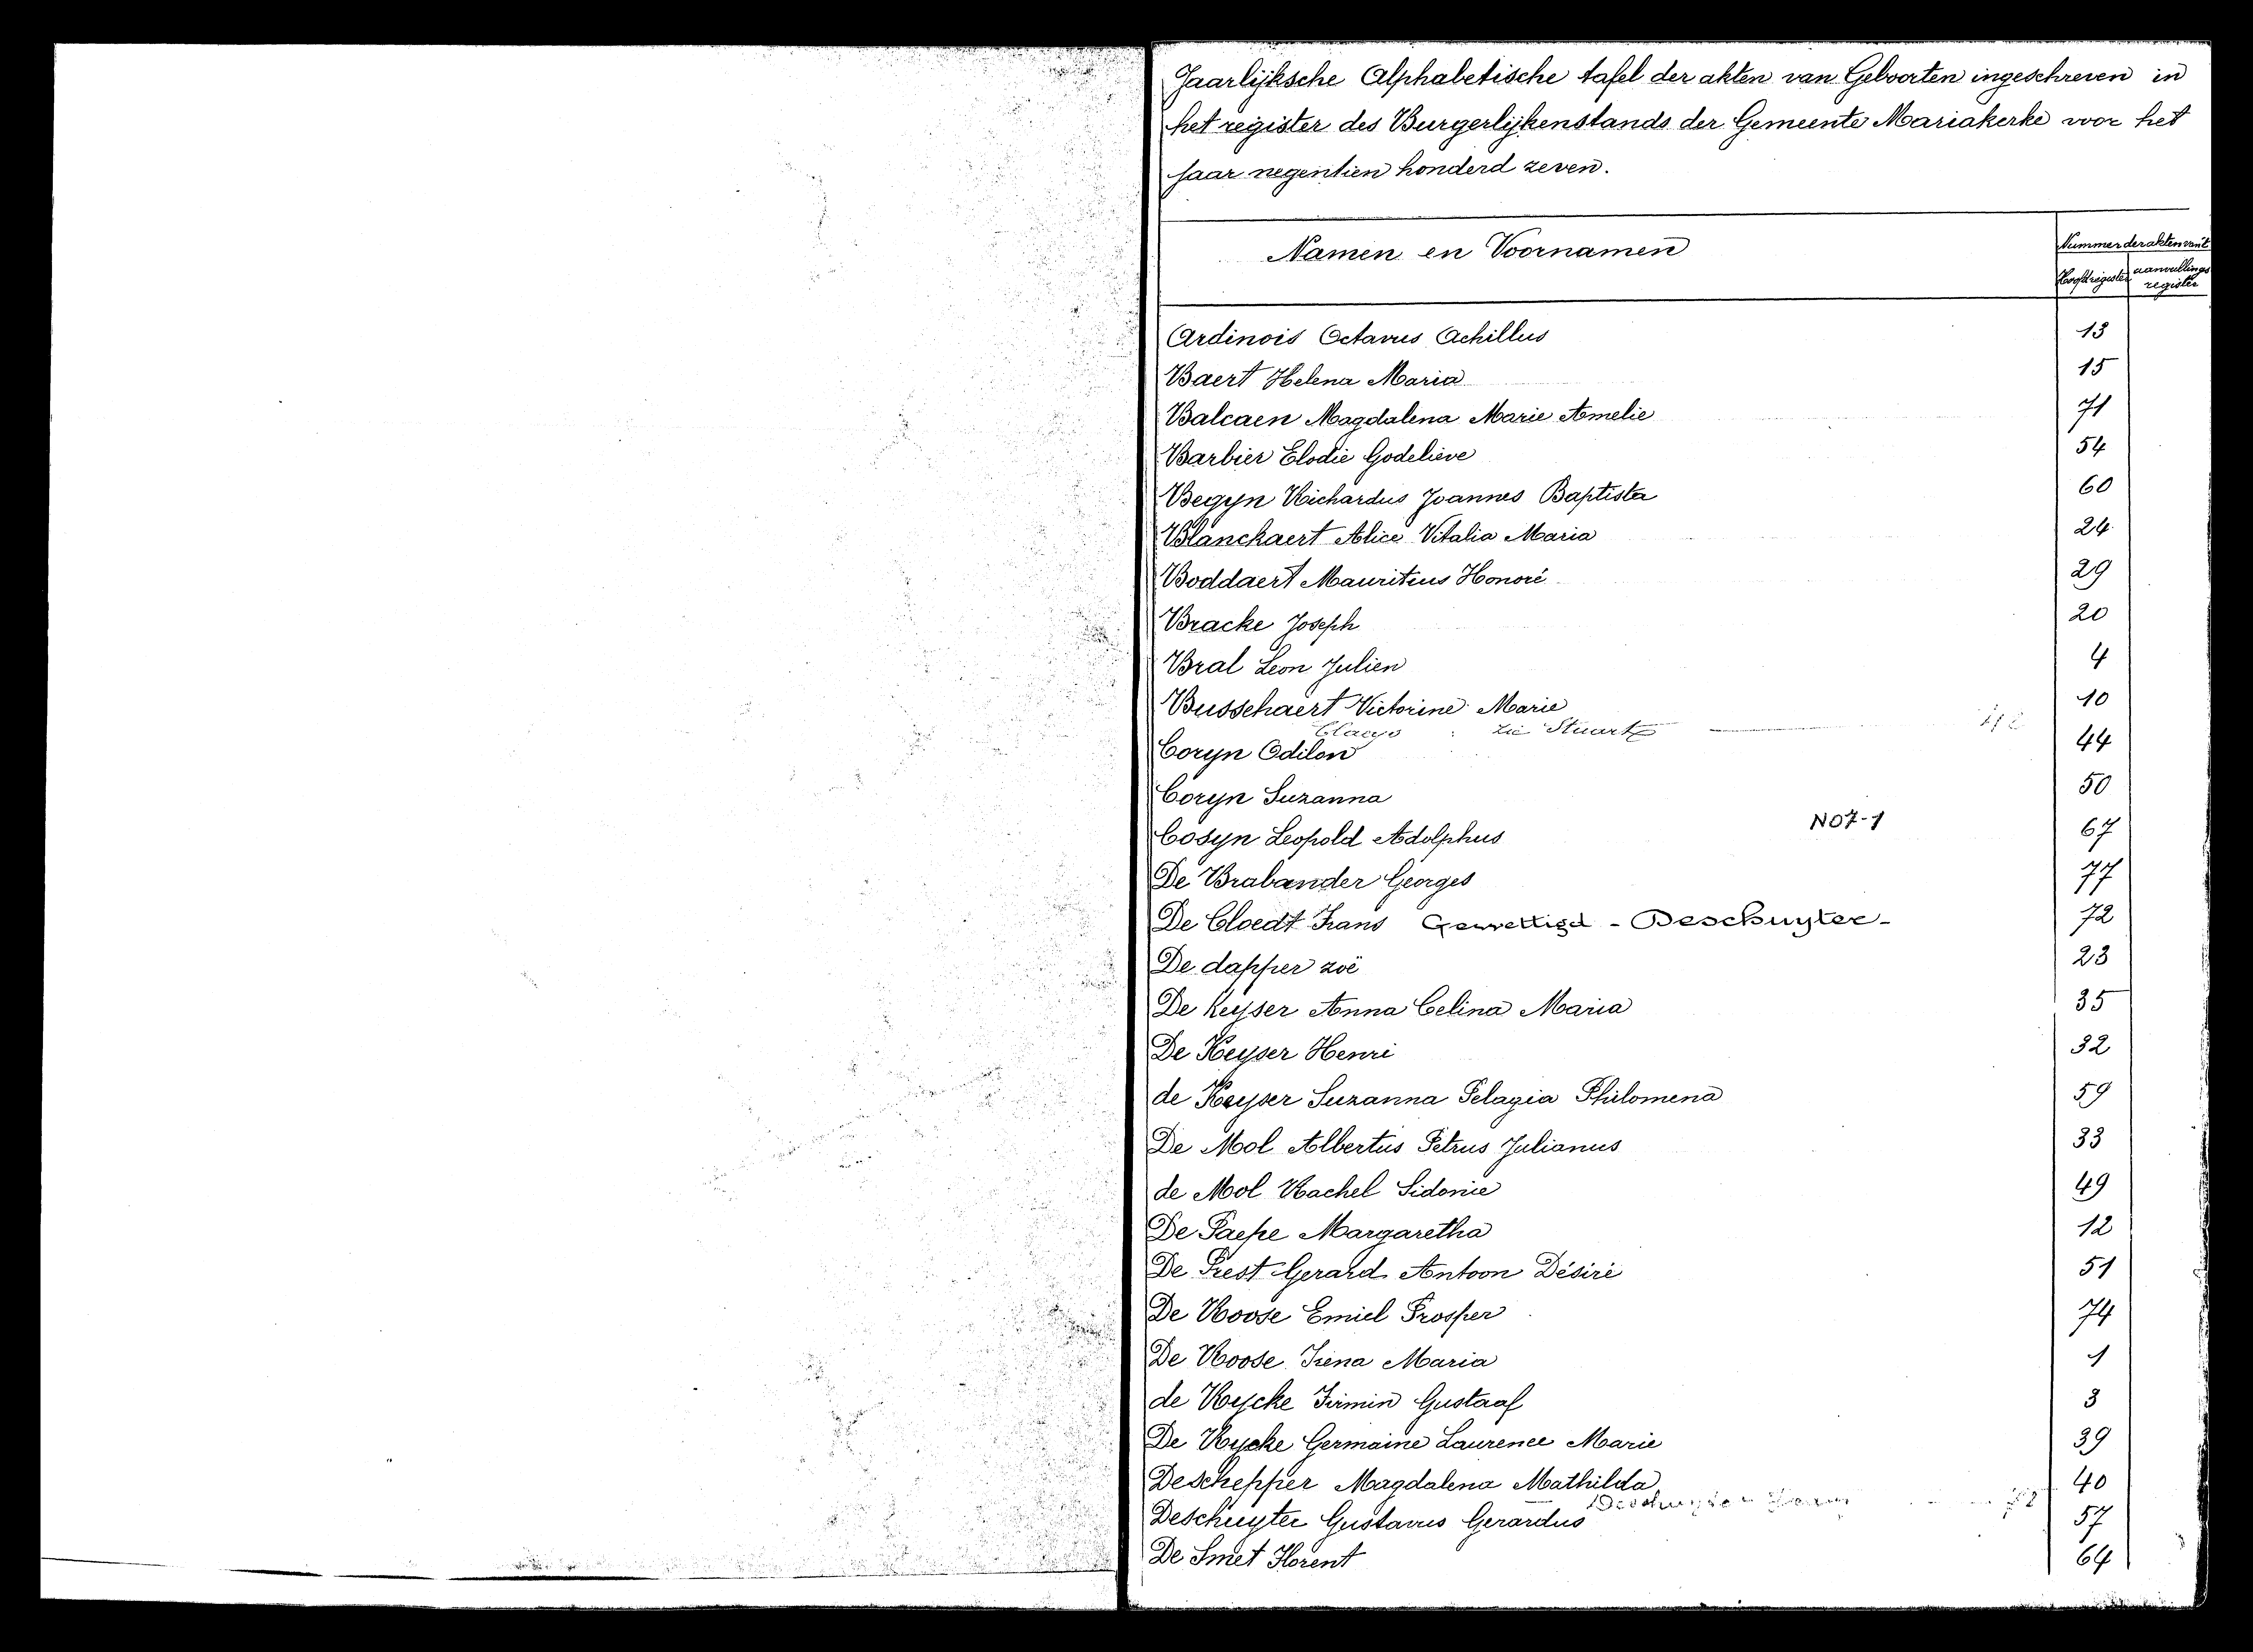 Jaarlijksche Alphabetische tafel der akten van Geboorten ingeschreven in
het register des Burgerlijkenstands der Gemeente Mariakerke voor het
jaar negentien honderd zeven.
Namen en Voornamen
Nummer der akten van't
Hoofdregister aanvullings register
Ardinois Octavus Achillus 13
Baert Helena Maria 15
Balcaen Magdalena Marie Amelie 71
Barbier Elodie Godelieve 54
Begyn Richardus Joannes Baptista 60
Blanckaert Alice Vitalia Maria 24
Boddaert Mauritius Honoré 29
Bracke Joseph 20
Bral Leon Julien 4
Busschaert Victorine Marie 10
Claeys zie Stuart
Coryn Odilon 44
Coryn Suzanna 50
N07-1
Cosyn Leopold Adolphus 67
De Brabander Georges 77
De Cloedt Frans Gewettigd - Deschuyter - 72
De dapper zoë 23
De Keyser Anna Celina Maria 35
De Keyser Henri 32
de Keyser Suzanna Pelagia Philomena 59
De Mol Albertus Petrus Julianus 33
de Mol Rachel Sidonie 49
De Paepe Margaretha 12
De Prest Gerard Antoon Désiré 51
De Roose Emiel Prosper 74
De Roose Irena Maria 1
de Rycke Firmin Gustaaf 3
De Rycke Germaine Laurence Marie 39
Deschepper Magdalena Mathilda 40
Deschuyter Gustavus Gerardus 57
De Smet Florent 64